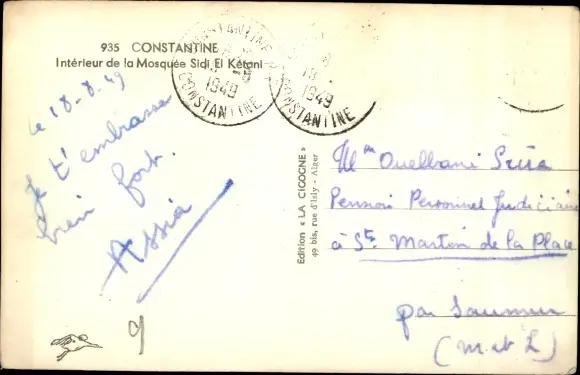 935 CONSTANTINE
Intérieur de la Mosquée Sidi El Kétani
CONSTANTINE
18
8
1949
CONSTANTINE
18
8
1949
CONSTANTINE
le 18-8-49
Je t'embrasse
bien fort.
Assia
9
Edition « LA CIGOGNE »
49 bis, rue d'Isly - Alger
Mme Ouelbani
Pension Personnel Judiciaire
à St. Martin de la Place
par Saumur
(M. et L)